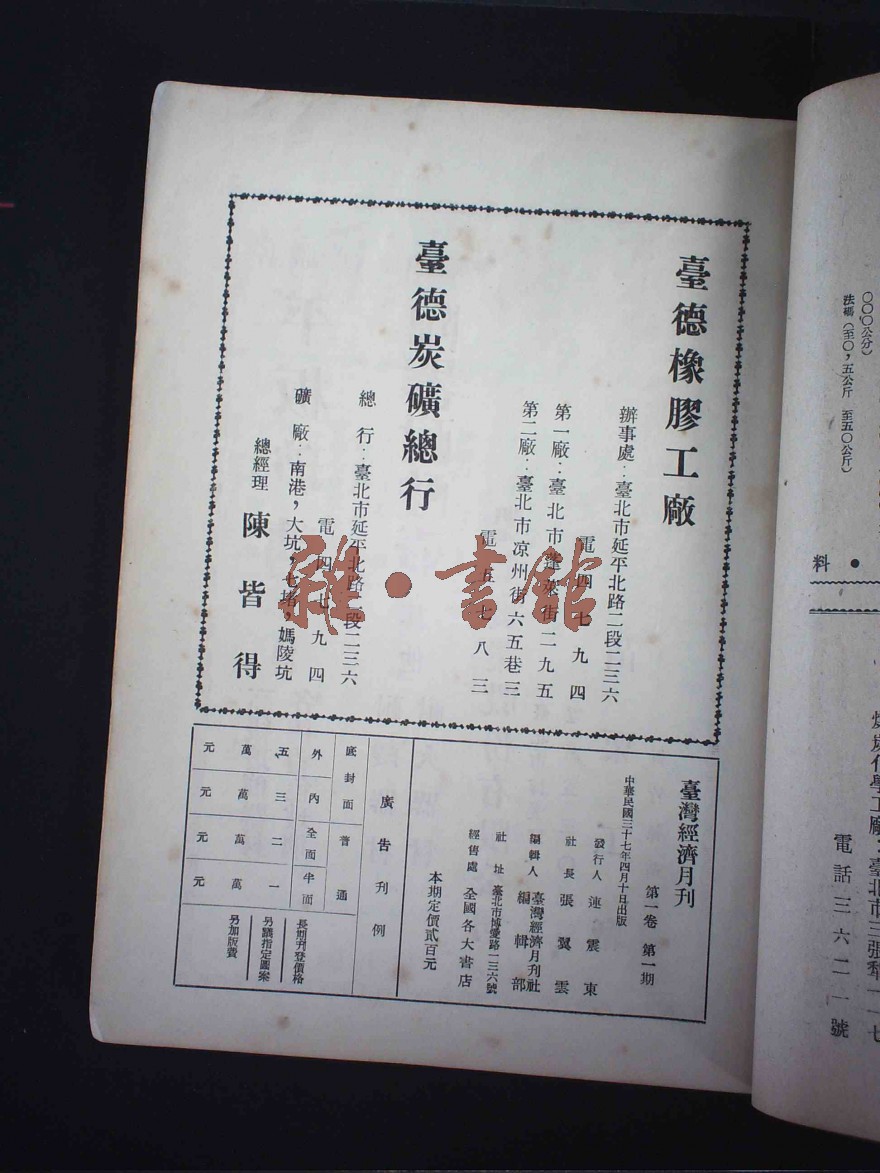 臺德橡膠工廠
辦事處：臺北市延平北路二段二三六
電四七九四
第一廠：臺北市蓬萊街二九五
第二廠：臺北市凉州街六五巷三
電五七八三
臺德炭礦總行
總行：臺北市延平北路二段二三六
電四七九四
礦廠：南港，大坑，七堵，媽陵坑
總經理 陳皆得
雜·書館
臺灣經濟月刊
第一卷 第一期
中華民國三十七年四月十日出版
發行人 連震東
社長 張翼雲
編輯人 臺灣經濟月刊社編輯部
社址 臺北市博愛路一三六號
經售處 全國各大書店
本期定價貳百元
廣告刊例
底封面 普通
外 內 全面 半面
五萬元
三萬元
二萬元
一萬元
長期刊登價格
另議指定圖案
另加版費
〇〇〇公分）
法碼（至〇，五公斤 至五〇公斤）
料 ●
電話三六二一號